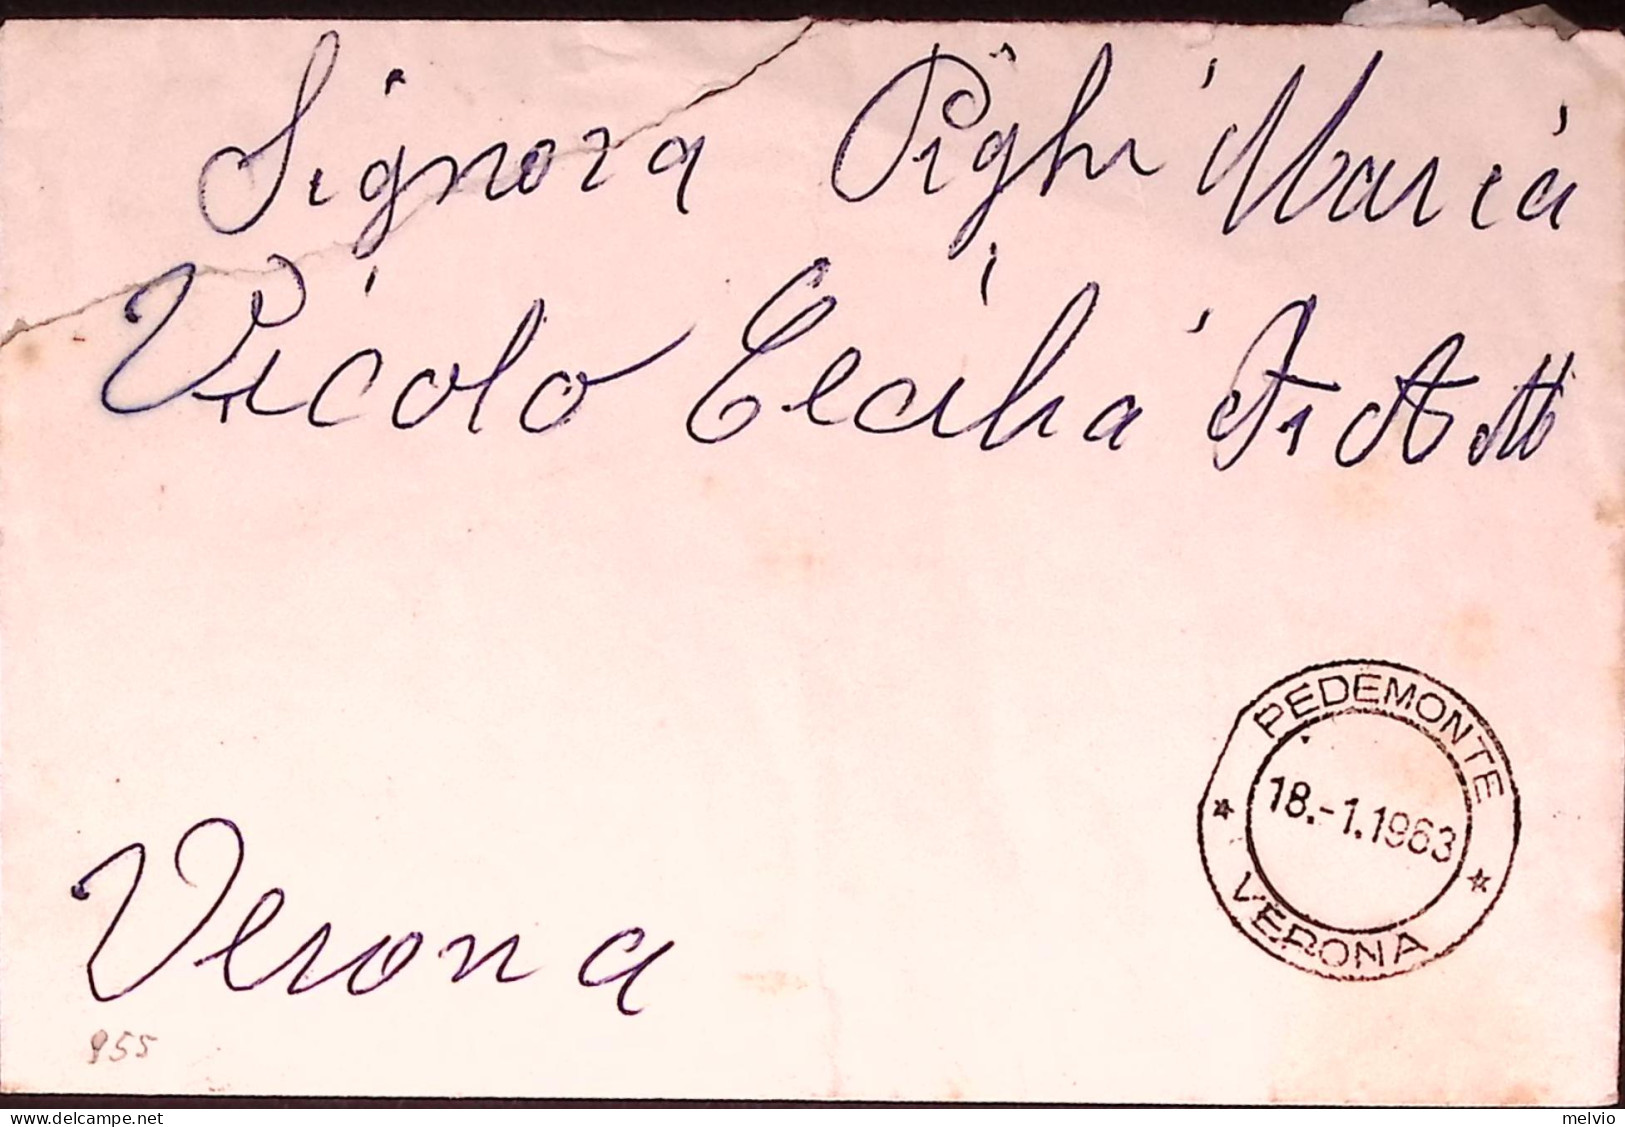 Signora Pighi Maria
Vicolo Cecilia
Verona
PEDEMONTE
18.-1.1963
VERONA
955
www.delcampe.net
melvio